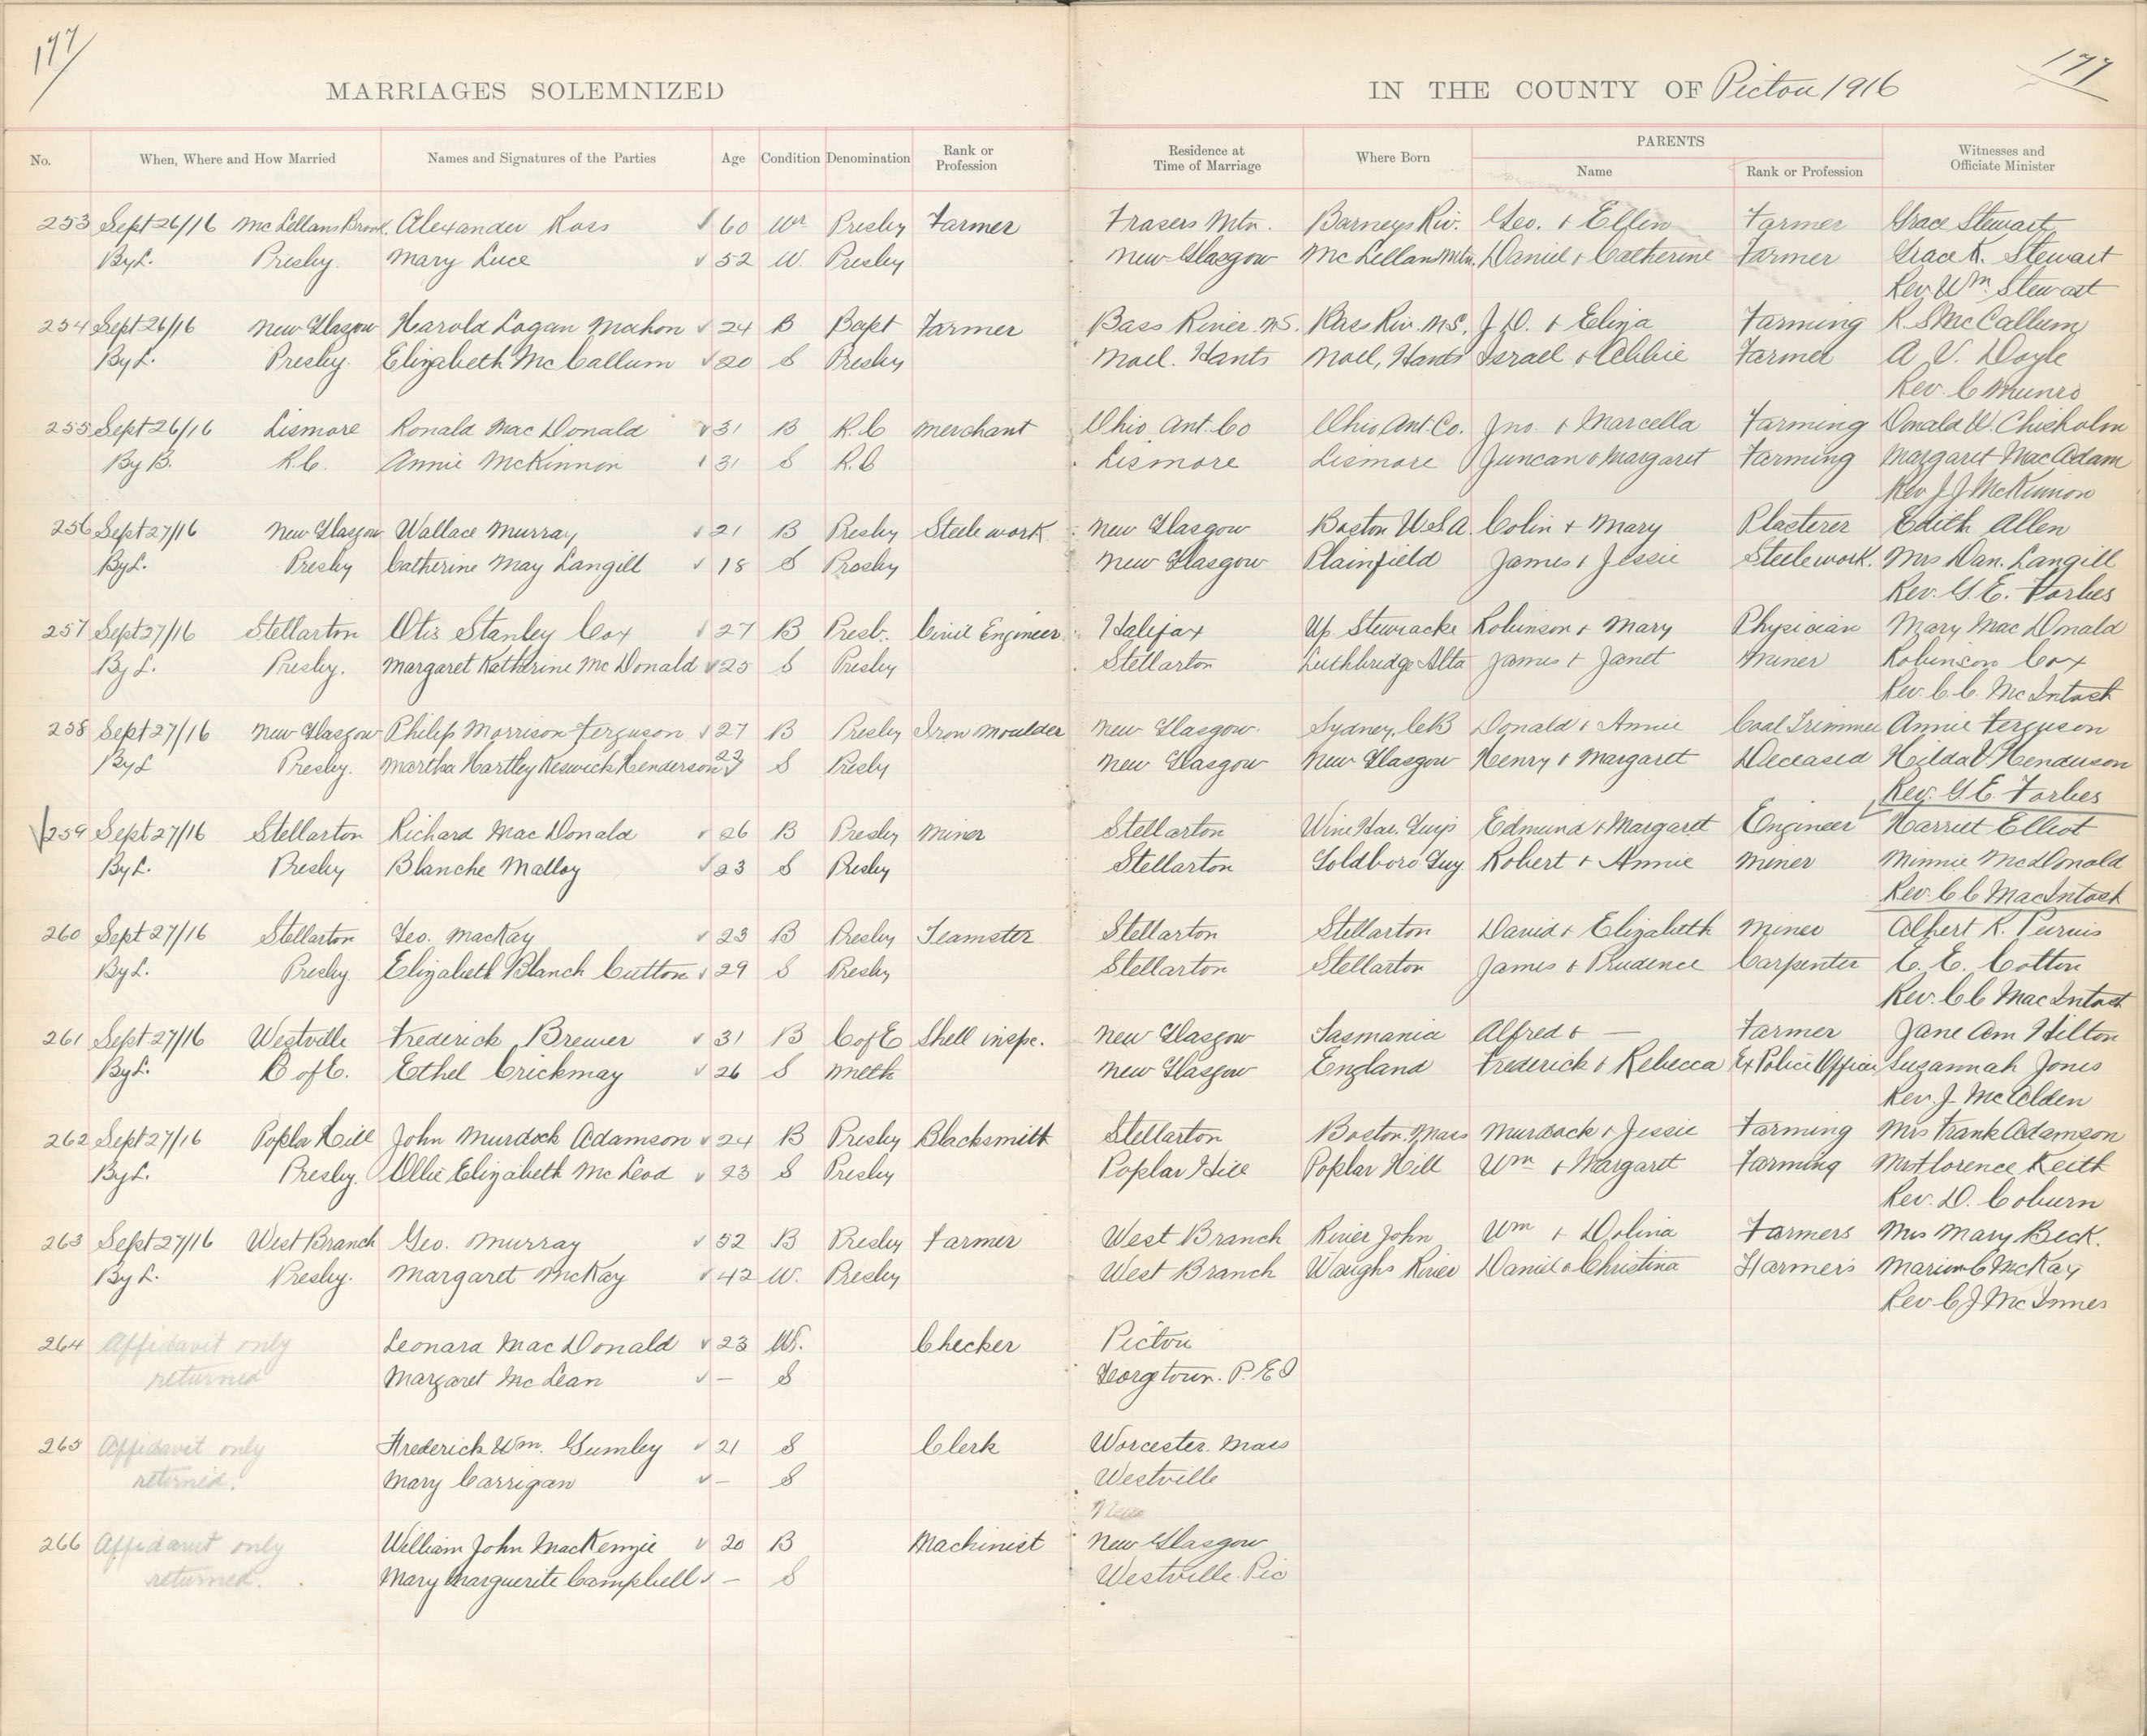 177
177
MARRIAGES SOLEMNIZED
IN THE COUNTY OF Pictou 1916
No. When, Where and How Married Names and Signatures of the Parties Age Condition Denomination Rank or Profession Residence at Time of Marriage Where Born PARENTS Name Rank or Profession Witnesses and Officiate Minister
253 Sept 26/16 McLellans Brook Alexander Ross 60 Wr Presby Farmer Frasers Mtn. Barneys Riv. Geo. + Ellen Farmer Grace Stewart
By L. Presby. Mary Luce 52 W. Presby New Glasgow McLellans Mtn. Daniel + Catherine Farmer Grace K. Stewart
Rev. Wm Stewart
254 Sept 26/16 New Glasgow Harold Logan Mahon 24 B Bapt Farmer Bass River N.S. Bass Riv. N.S. J.D. + Eliza Farming R. S McCallum
By L. Presby. Elizabeth McCallum 20 S Presby Noel. Hants Noel, Hants Israel + Abbie Farmer A V. Doyle
Rev C Munro
255 Sept 26/16 Lismore Ronald MacDonald 31 B R.C Merchant Ohio Ant. Co Ohio Ant. Co. Jno. + Marcella Farming Donald W. Chisholm
By B. R.C. Annie McKinnon 31 S R.C Lismore Lismore Duncan + Margaret Farming Margaret MacAdam
Rev J J McKinnon
256 Sept 27/16 New Glasgow Wallace Murray 21 B Presby Steelework New Glasgow Boston U.S.A. Colin + Mary Plasterer Edith Allen
By L. Presby Catherine May Langill 18 S Presby New Glasgow Plainfield James + Jessie Steelework. Mrs Dan. Langill
Rev. G. E. Forbes
257 Sept 27/16 Stellarton Otis Stanley Cox 27 B Presb. Civil Engineer. Halifax Up. Stewiacke Robinson + Mary Physician Mary MacDonald
By L. Presby. Margaret Katherine McDonald 25 S Presby Stellarton Luthbridge Alta James + Janet Miner Robinson Cox
Rev. C. C. McIntosh
258 Sept 27/16 New Glasgow Philip Morrison Ferguson 27 B Presby Iron Moulder New Glasgow. Sydney, C.B Donald + Annie Coal Trimmer Annie Ferguson
By L Presby. Martha Hartley Keswick Henderson 23 S Presby New Glasgow New Glasgow Henry + Margaret Deceased Hilda V Henderson
Rev. G. E. Forbes
259 Sept 27/16 Stellarton Richard MacDonald 26 B Presby Miner Stellarton Wine Har. Guys Edmund + Margaret Engineer Harriet Elliot
By L. Presby Blanche Malloy 23 S Presby Stellarton Goldboro Guy. Robert + Annie Miner Minnie McDonald
Rev. C C MacIntosh
260 Sept 27/16 Stellarton Geo. MacKay 23 B Presby Teamster Stellarton Stellarton David + Elizabeth Miner Albert R. Purvis
By L. Presby Elizabeth Blanch Cutton 29 S Presby Stellarton Stellarton James + Prudence Carpenter C. E. Cotton
Rev. C C MacIntosh
261 Sept 27/16 Westville Frederick Brewer 31 B C of E Shell inspc. New Glasgow Tasmania Alfred + — Farmer Jane Ann Hilton
By L. C of E. Ethel Crickmay 26 S Meth New Glasgow England Frederick + Rebecca Ex Police Officer Suzannah Jones
Rev. J. McAlden
262 Sept 27/16 Poplar Hill John Murdock Adamson 24 B Presby Blacksmith Stellarton Boston. Mass Murdock + Jessie Farming Mrs Frank Adamson
By L. Presby. Ollie Elizabeth McLeod 23 S Presby Poplar Hill Poplar Hill Wm + Margaret Farming Mrs Florence Keith
Rev. D. Coburn
263 Sept 27/16 West Branch Geo. Murray 52 B Presby Farmer West Branch River John Wm + Dolina Farmers Mrs Mary Beck.
By L. Presby. Margaret McKay 42 W. Presby West Branch Waughs River Daniel + Christina Farmers Marion C McKay
Rev C J McInnes
264 Affidavit only Leonard MacDonald 23 W. Checker Pictou
returned Margaret McLean – S Georgetown. P.E.I
265 Affidavit only Frederick Wm. Gumley 21 S Clerk Worcester. Mass
returned. Mary Carrigan – S Westville
266 Affidavit only William John MacKenzie 20 B Machinist New Glasgow
returned. Mary Marguerite Campbell – S Westville. Pic